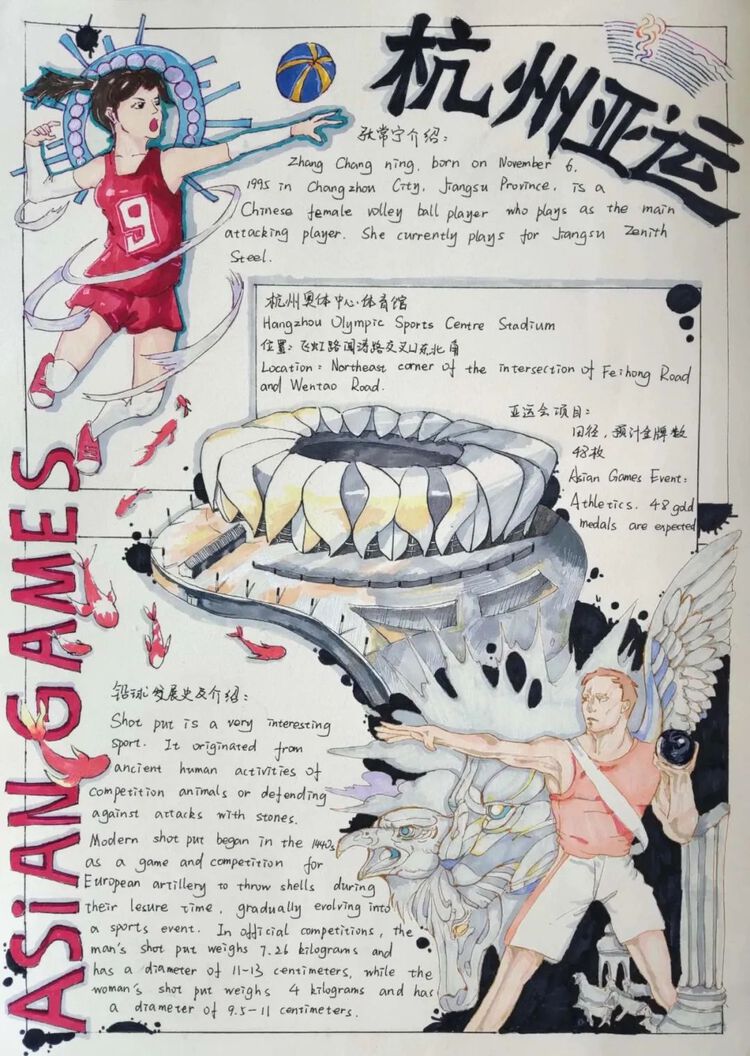 杭州亚运
张常宁介绍:
Zhang Chang ning, born on November 6,
1995 in Changzhou City, Jiangsu Province, is a
Chinese female volley ball player who plays as the main
attacking player. She currently plays for Jiangsu Zenith
Steel.
9
杭州奥体中心体育馆
Hangzhou Olympic Sports Centre Stadium
位置:飞虹路闻涛路交叉口东北角
Location: Northeast corner of the intersection of Feihong Road
and Wentao Road.
亚运会项目:
田径,预计金牌数
48枚
Asian Games Event:
Athletics. 48 gold
medals are expected
ASiAN GAMES
铅球发展史及介绍:
Shot put is a very interesting
sport. It originated from
ancient human activities of
competition animals or defending
against attacks with stones.
Modern shot put began in the 1440s
as a game and competition for
European artillery to throw shells during
their lesure time, gradually evolving into
a sports event. In official competitions, the
man's shot put weighs 7.26 kilograms and
has a diameter of 11-13 centimeters, while the
woman's shot put weighs 4 kilograms and has
a diameter of 9.5-11 centimeters.